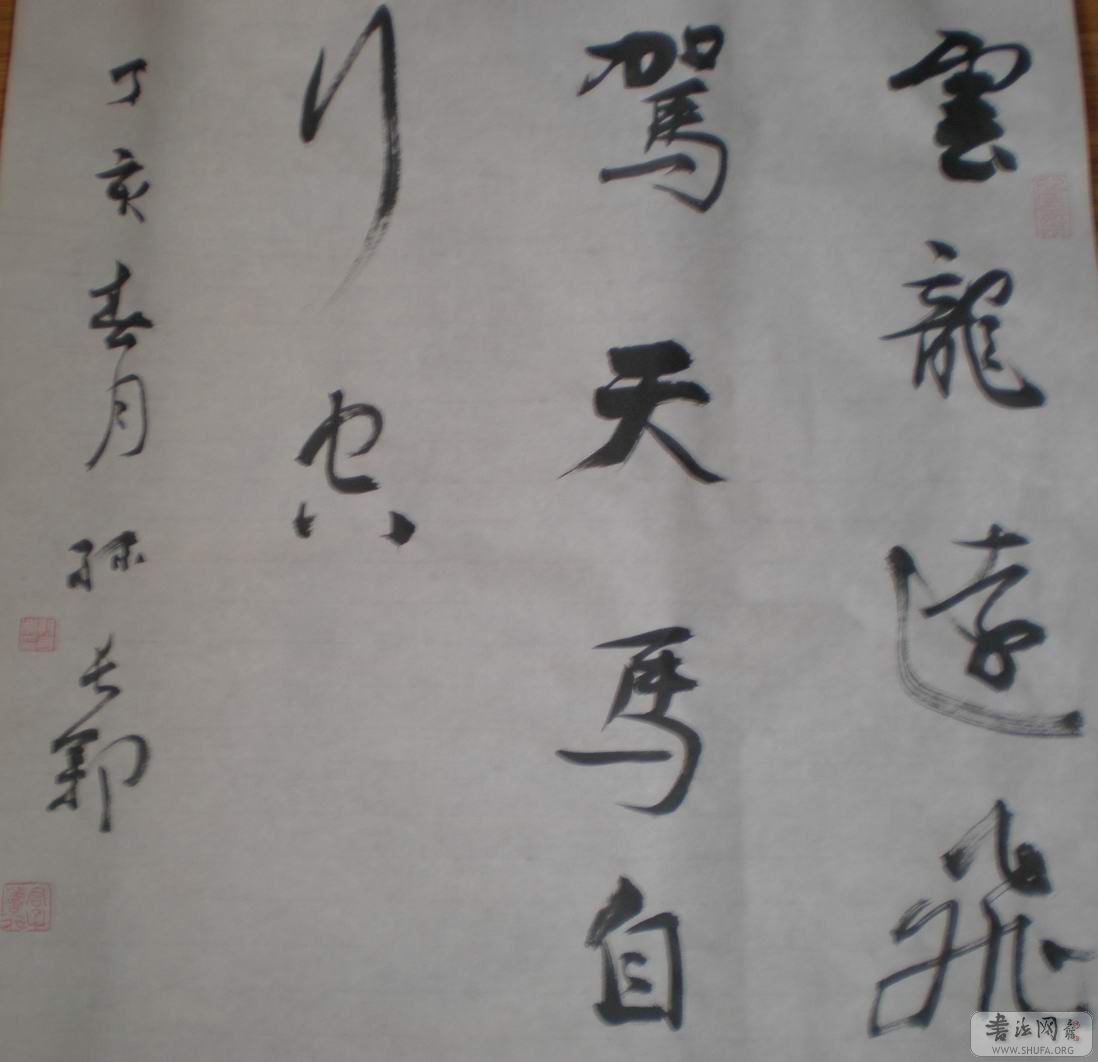 雲龍遠飛
駕天馬自
行空
丁亥春月孫長
書法网
WWW.SHUFA.ORG